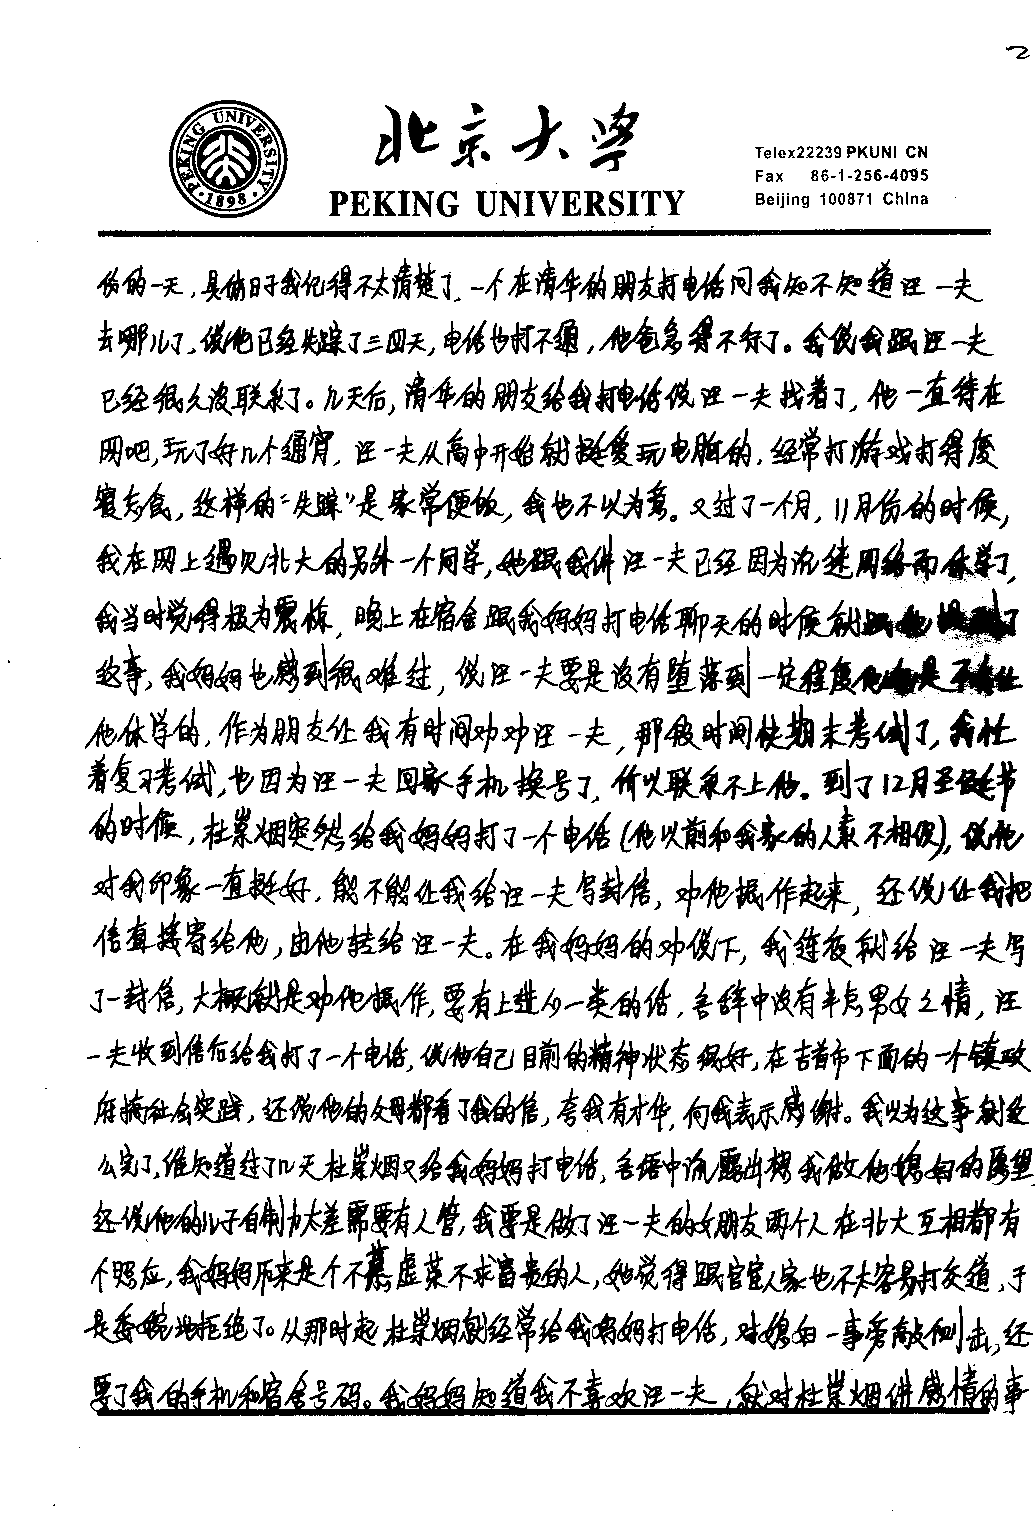 2
北京大学
PEKING UNIVERSITY
PEKING UNIVERSITY
·1898·
Telex22239 PKUNI CN
Fax 86-1-256-4095
Beijing 100871 China
份的一天，具体日子我记得不太清楚了，一个在清华的朋友打电话问我知不知道汪一夫
去哪儿了，说他已经失踪了三四天，电话也打不通，他爸急得不行了。我说我跟汪一夫
已经很久没联系了。几天后，清华的朋友给我打电话说汪一夫找着了，他一直待在
网吧，玩了好几个通宵，汪一夫从高中开始就挺爱玩电脑的，经常打游戏打得废
寝忘食，这样的“失踪”是家常便饭，我也不以为意。又过了一个月，11月份的时候，
我在网上遇见北大的另外一个同学，她跟我讲汪一夫已经因为沉迷网络而休学了，
我当时觉得极为震惊，晚上在宿舍跟我妈妈打电话聊天的时候就跟她提到了
这事，我妈妈也感到很难过，说汪一夫要是没有堕落到一定程度他是不会让
他休学的，作为朋友让我有时间劝劝汪一夫，那段时间快期末考试了，我忙
着复习考试，也因为汪一夫回家手机换号了，所以联系不上他。到了12月圣诞节
的时候，杜崇烟突然给我妈妈打了一个电话（他以前和我家的人素不相识），说他
对我印象一直挺好，能不能让我给汪一夫写封信，劝他振作起来，还说让我把
信直接寄给他，由他转给汪一夫。在我妈妈的劝说下，我连夜就给汪一夫写
了一封信，大概就是劝他振作，要有上进心一类的话，言辞中没有半点男女之情，汪
一夫收到信后给我打了一个电话，说他自己目前的精神状态很好，在吉首市下面的一个镇政
府搞社会实践，还说他的父母都看了我的信，夸我有才华，向我表示感谢。我以为这事就这
么完了，谁知道过了几天杜崇烟又给我妈妈打电话，言语中流露出想我做他媳妇的愿望
还说他的儿子自制力太差需要有人管，我要是做了汪一夫的女朋友两个人在北大互相都有
个照应，我妈妈历来是个不慕虚荣不求富贵的人，她觉得跟官宦人家也不太容易打交道，于
是委婉地拒绝了。从那时起，杜崇烟就经常给我妈妈打电话，对媳妇一事旁敲侧击，还
要了我的手机和宿舍号码。我妈妈知道我不喜欢汪一夫，就对杜崇烟讲感情的事